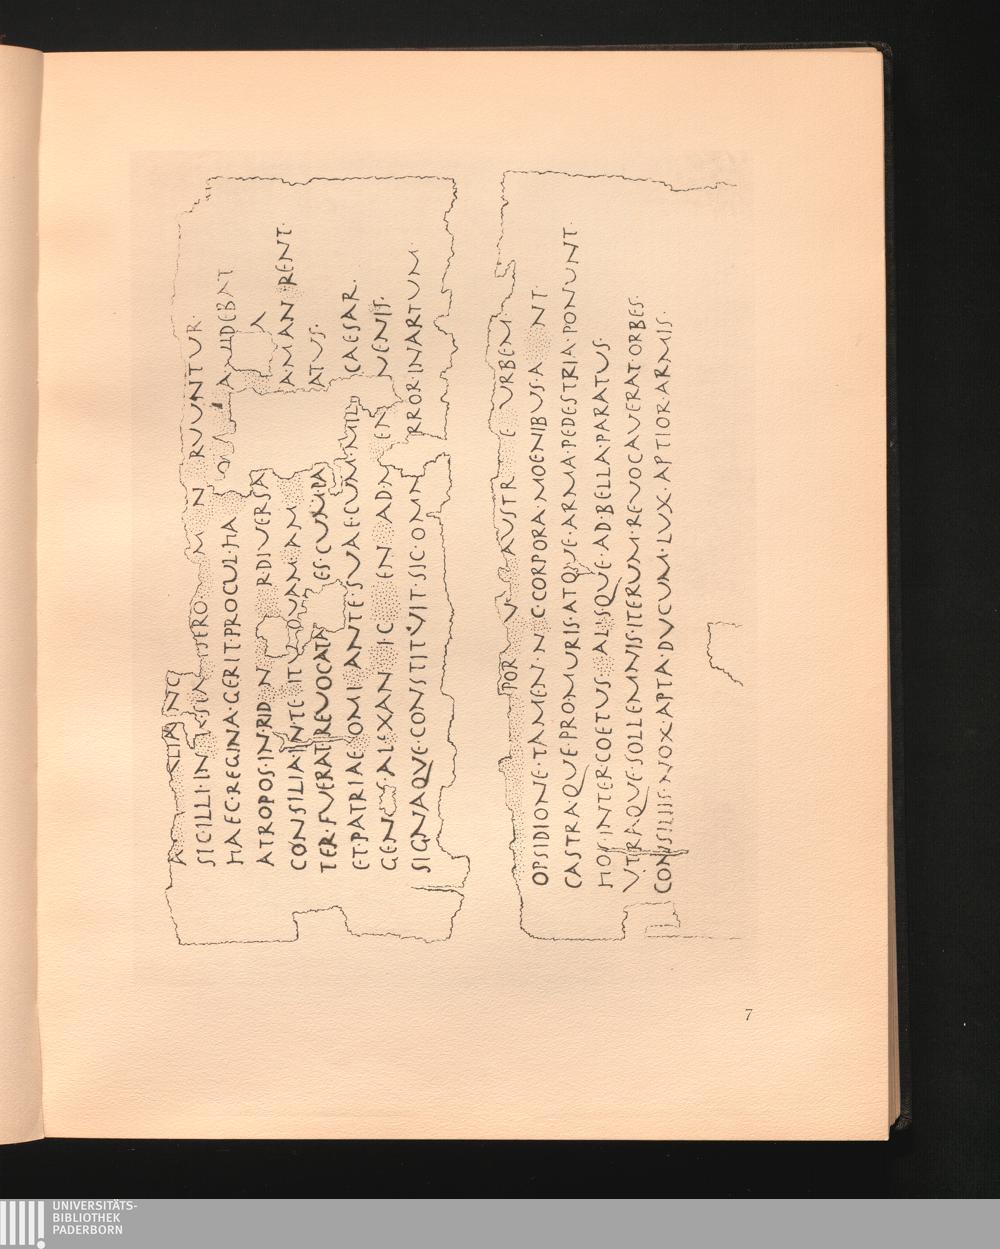 SIC·ILLI·IN
RUUNTUR·
HAEC·REGINA·GERIT·PROCUL·HA
AUDEBAT
ATROPOS·IN·RID N R·DIVERSA
CONSILIA·IN·TE·ITV QVAM·AM AMAN RENT·
TER·FVERAT·REVOCATA ES·CVM·PA ATVS·
ET·PATRIAE·COMI ANTE·SVAE·CVM·MIL CAESAR·
GEN S·ALEXAN IC EN AD·N EN VENIS·
SIGNAQVE·CONSTITVIT·SIC·OMN RROR·IN·ARTVM·
POR V R AVSTR E URBEM·
OPSIDIONE·TAMEN·N C·CORPORA·MOENIBVS·A NT·
CASTRAQVE·PRO·MVRIS·ATQVE·ARMA·PEDESTRIA·PONVNT·
HOS·INTER·COETVS·ALISQVE·AD·BELLA·PARATVS·
VTRAQVE·SOLLEMNIS·ITERVM·REVOCAVERAT·ORBES·
CONSILIIS·NOX·APTA·DVCVM·LVX·APTIOR·ARMIS·
7
UNIVERSITÄTS-
BIBLIOTHEK
PADERBORN